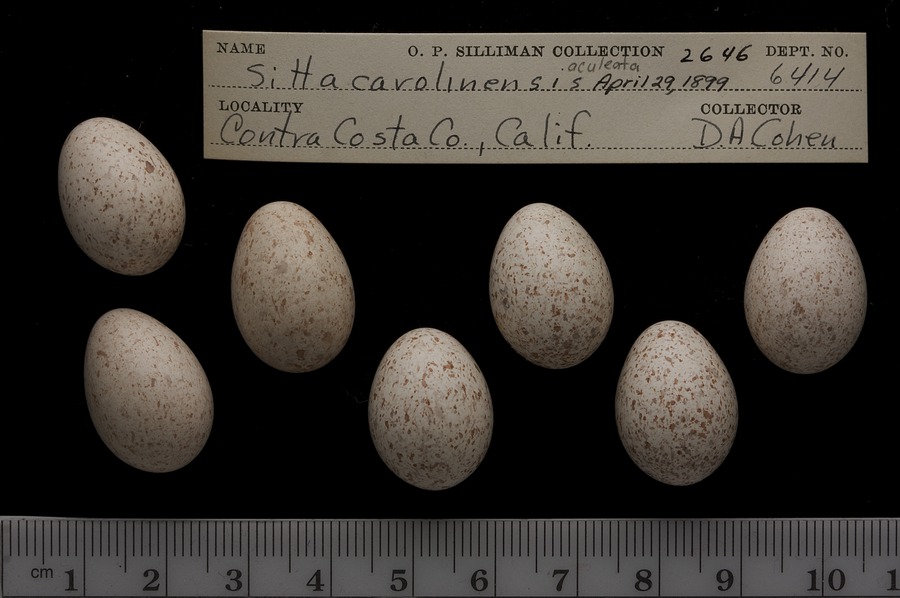 NAME O. P. SILLIMAN COLLECTION 2646 DEPT. NO.
aculeata
Sitta carolinensis April 29, 1899 6414
LOCALITY COLLECTOR
Contra Costa Co., Calif. D.A Cohen
cm 1 2 3 4 5 6 7 8 9 10 1